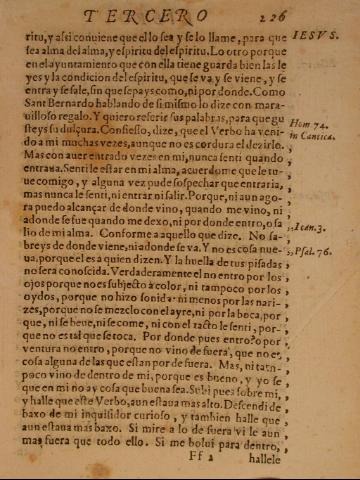 TERCERO 226
ritu, y assi conviene que ello sea y se lo llame, para que
IESVS.
sea alma del alma, y espiritu del espiritu. Lo otro porque
en el ayuntamiento que con ella tiene guarda bien las le
yes y la condicion del espiritu, que se va, y se viene, y se
entra y se sale, sin que sepays como, ni por donde. Como
Sant Bernardo hablando de si mismo lo dize con mara-
uilloso regalo. Y quiero referir sus palabras, para que gu
Hom 74.
steys su dulçura. Confiesso, dize, que el Verbo ha veni-
in Cantica.
do a mi muchas vezes, aunque no es cordura el dezirlo.
Mas con auer entrado vezes en mi, nunca senti quando
entraua. Senti le estar en mi alma, acuerdome que le tu-
ue comigo, y alguna vez pude sospechar que entraria,
mas nunca le senti, ni entrar ni salir. Porque, ni aun ago-
ra puedo alcançar de donde vino, quando me vino, ni
adonde se fue quando me dexo, ni por donde entro, o sa
lio de mi alma. Conforme a aquello que dize. No sa-
Ioan. 3.
breys de donde viene, ni adonde se va. Y no es cosa nue-
ua, porque el es a quien dizen. Y la huella de tus pisadas
Psal. 76.
no sera conoscida. Verdaderamente el no entro por los
ojos porque no es subjecto à color, ni tampoco por los
oydos, porque no hizo sonido: ni menos por las nari-
zes, porque no se mezclo con el ayre, ni por la boca, por
que, ni se beue, ni se come, ni con el tacto le senti, por-
que no es tal que se toca. Por donde pues entro? o por
ventura no entro, porque no vino de fuera, que no es
cosa alguna de las que estan por de fuera. Mas, ni tam-
poco vino de dentro de mi, porque es bueno, y yo se
que en mi no ay cosa que buena sea. Subi pues sobre mi,
y halle que este Verbo, aun estaua mas alto. Descendi de
baxo de mi inquisidor curioso, y tambien halle que
aun estaua mas baxo. Si mire a lo de fuera vi le aun
mas fuera que todo ello. Si me bolui para dentro,
Ff 2 hallele